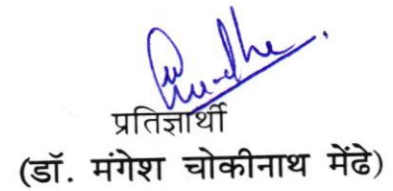 प्रतिज्ञार्थी
(डॉ. मंगेश चोकीनाथ मेंढे)